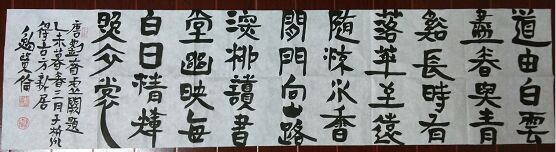 道由白雲
盡春與青
谿長時有
落華至遠
隨流水香
閒門向山路
深柳讀書
堂幽映每
白日清輝
照衣裳
唐劉眘虛闕題
乙未暮春三月于杭州
居